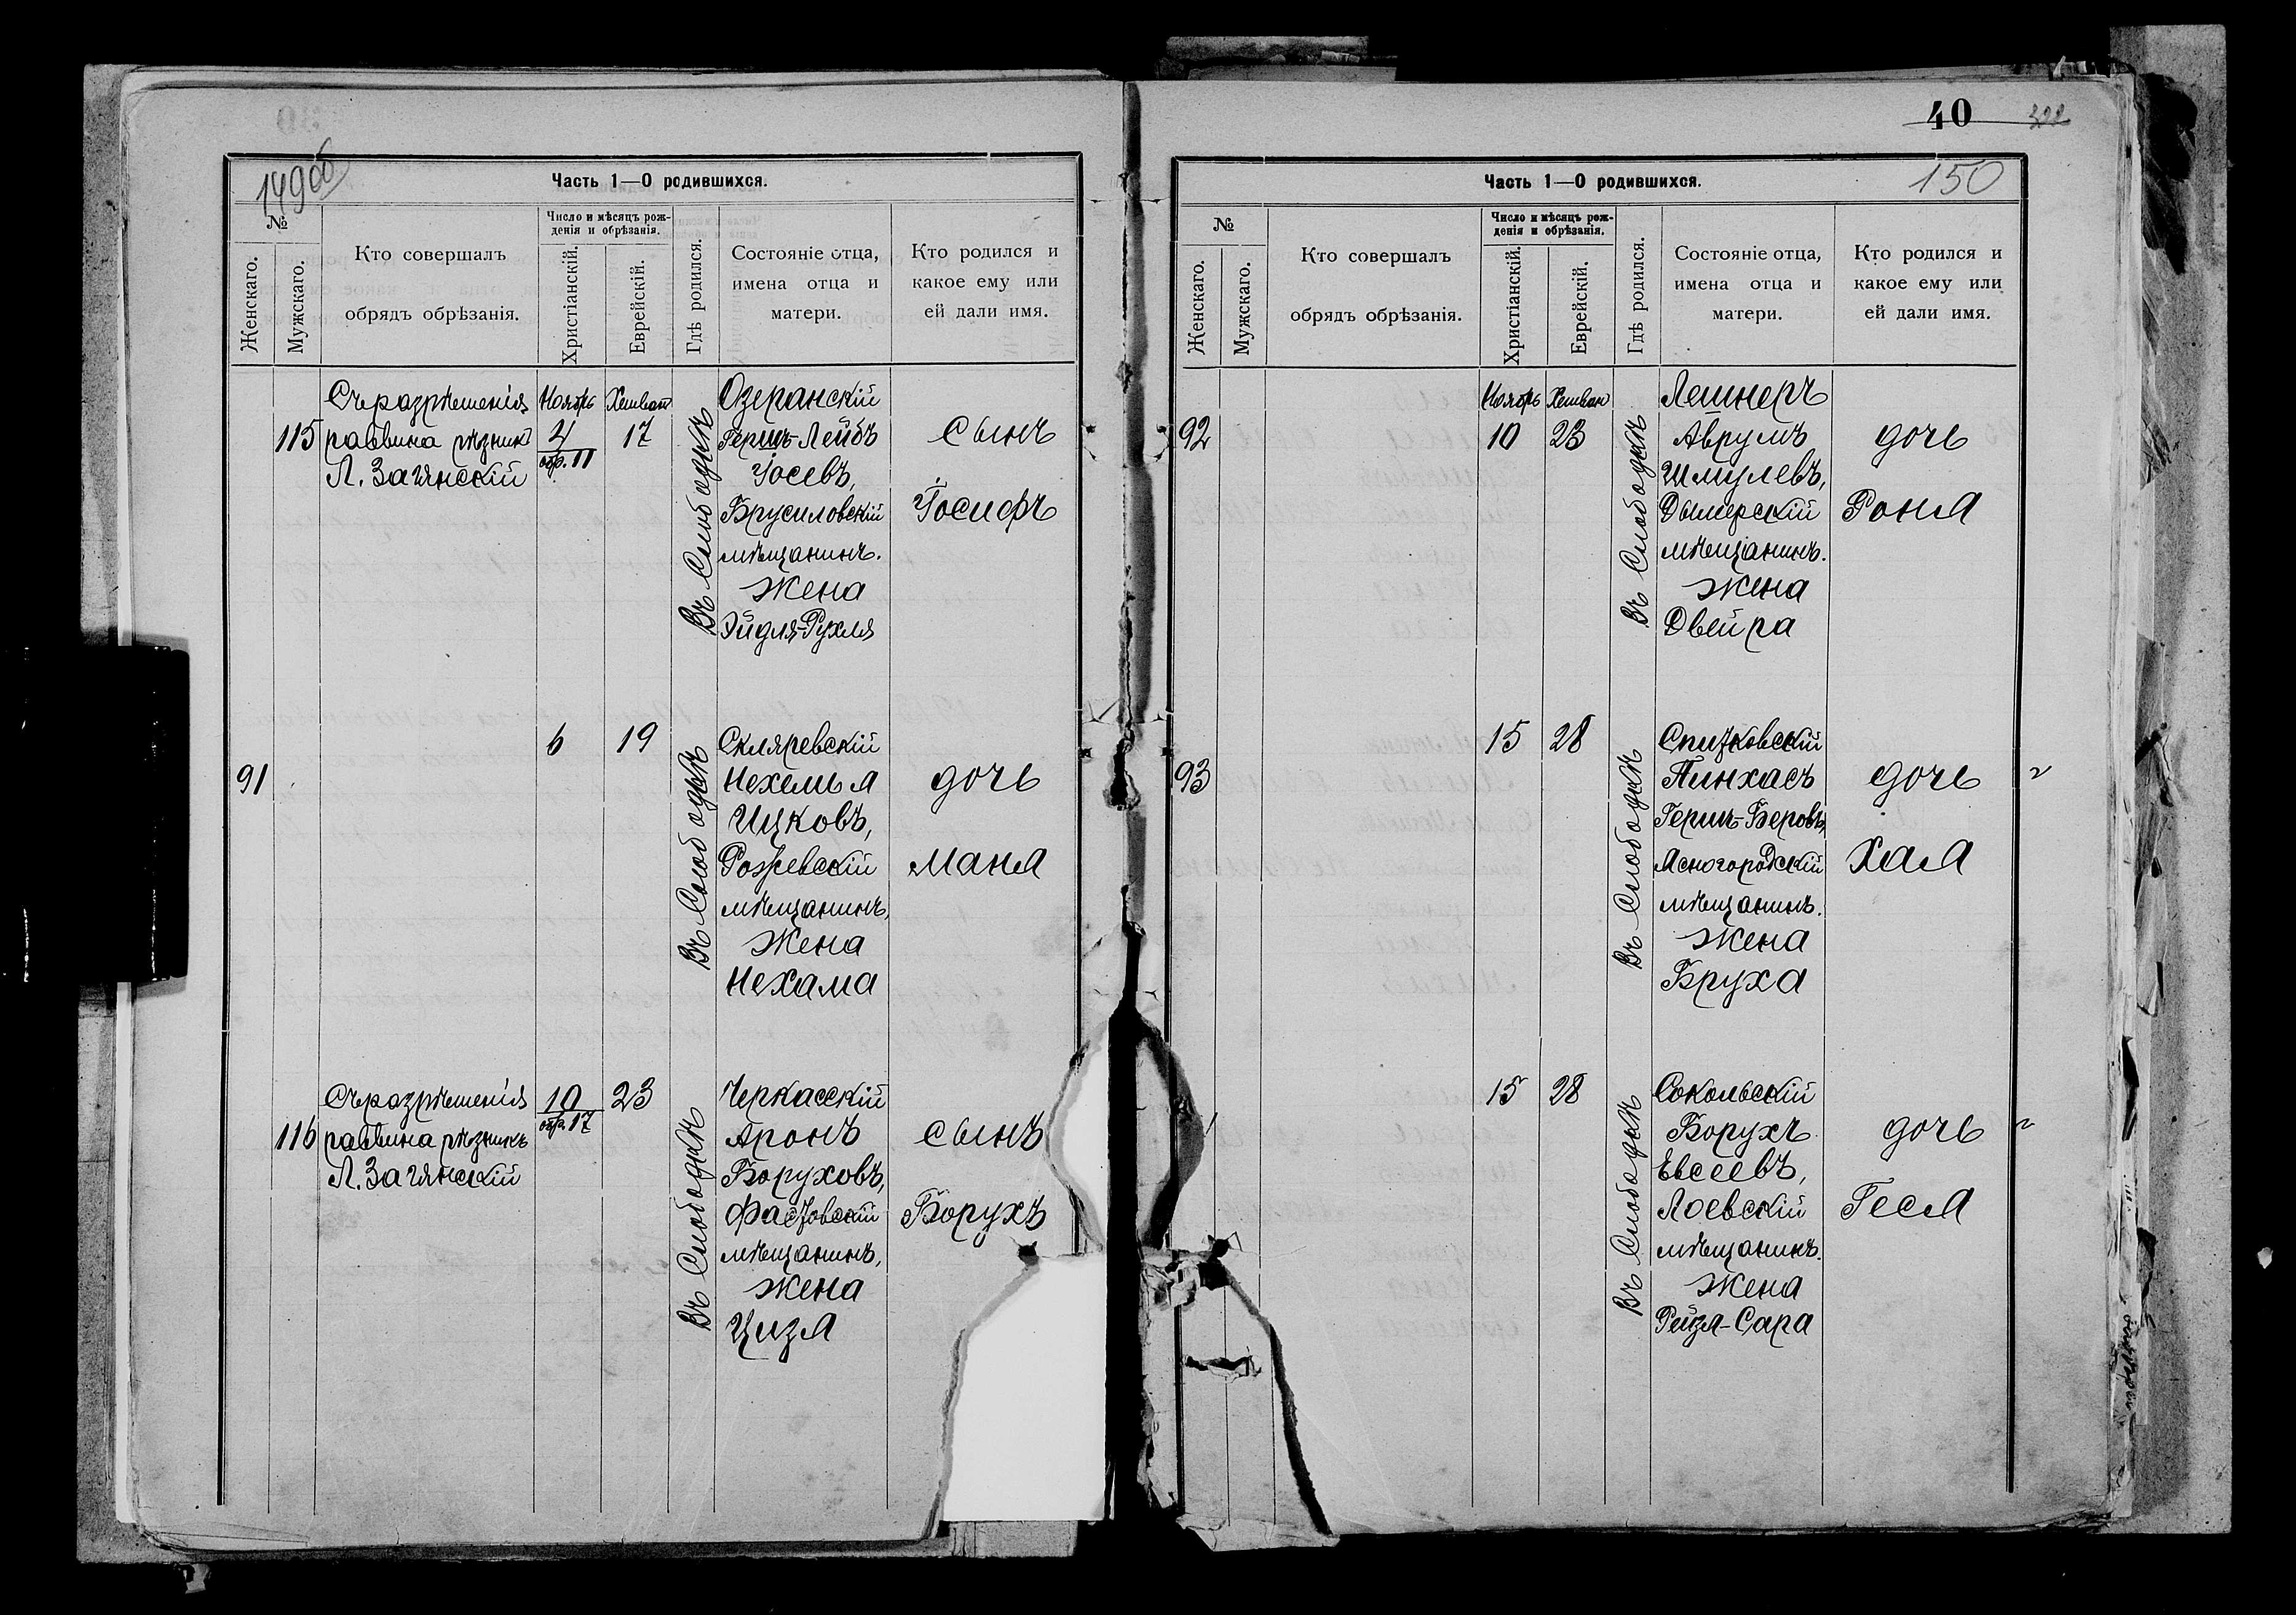 149об
Часть 1—О родившихся.
№
Женскаго.
Мужскаго.
Кто совершалъ
обрядъ обрѣзанія.
Число и мѣсяцъ рож-
денія и обрѣзанія.
Христіанскій.
Еврейскій.
Гдѣ родился.
Состояніе отца,
имена отца и
матери.
Кто родился и
какое ему или
ей дали имя.
115
Съ разрѣшенія
раввина рѣзникъ
Л. Загянскій
Ноябрь
4
обр. 11
Хешван
17
Въ Слободкѣ
Озеранскій
Гершъ-Лейбъ
Іосевъ,
Брусиловскій
мѣщанинъ.
жена
Эйдля-Рухля
сынъ
Іосифъ
91
6
19
Въ Слободкѣ
Скляревскій
Нехемья
Ицковъ,
Рожевскій
мѣщанинъ,
жена
Нехама
дочь
Маня
116
Съ разрѣшенія
раввина рѣзникъ
Л. Загянскій
10
обр. 17
23
Въ Слободкѣ
Черкасскій
Аронъ
Боруховъ,
Фастовскій
мѣщанинъ,
жена
Цизя
сынъ
Борухъ
40
150
Часть 1—О родившихся.
№
Женскаго.
Мужскаго.
Кто совершалъ
обрядъ обрѣзанія.
Число и мѣсяцъ рож-
денія и обрѣзанія.
Христіанскій.
Еврейскій.
Гдѣ родился.
Состояніе отца,
имена отца и
матери.
Кто родился и
какое ему или
ей дали имя.
92
Ноябрь
10
Хешван
23
Въ Слободкѣ
Лешнеръ
Аврумъ
Шмулевъ,
Дымерскій
мѣщанинъ.
жена
Двейра
дочь
Роня
93
15
28
Въ Слободкѣ
Спичковскій
Пинхасъ
Гершъ-Беровъ,
Ясногородскій
мѣщанинъ.
жена
Бруха
дочь
Хая
15
28
Въ Слободкѣ
Сокольскій
Борухъ
Евсеевъ,
Лоевскій
мѣщанинъ.
жена
Рейзя-Сара
дочь
Геся